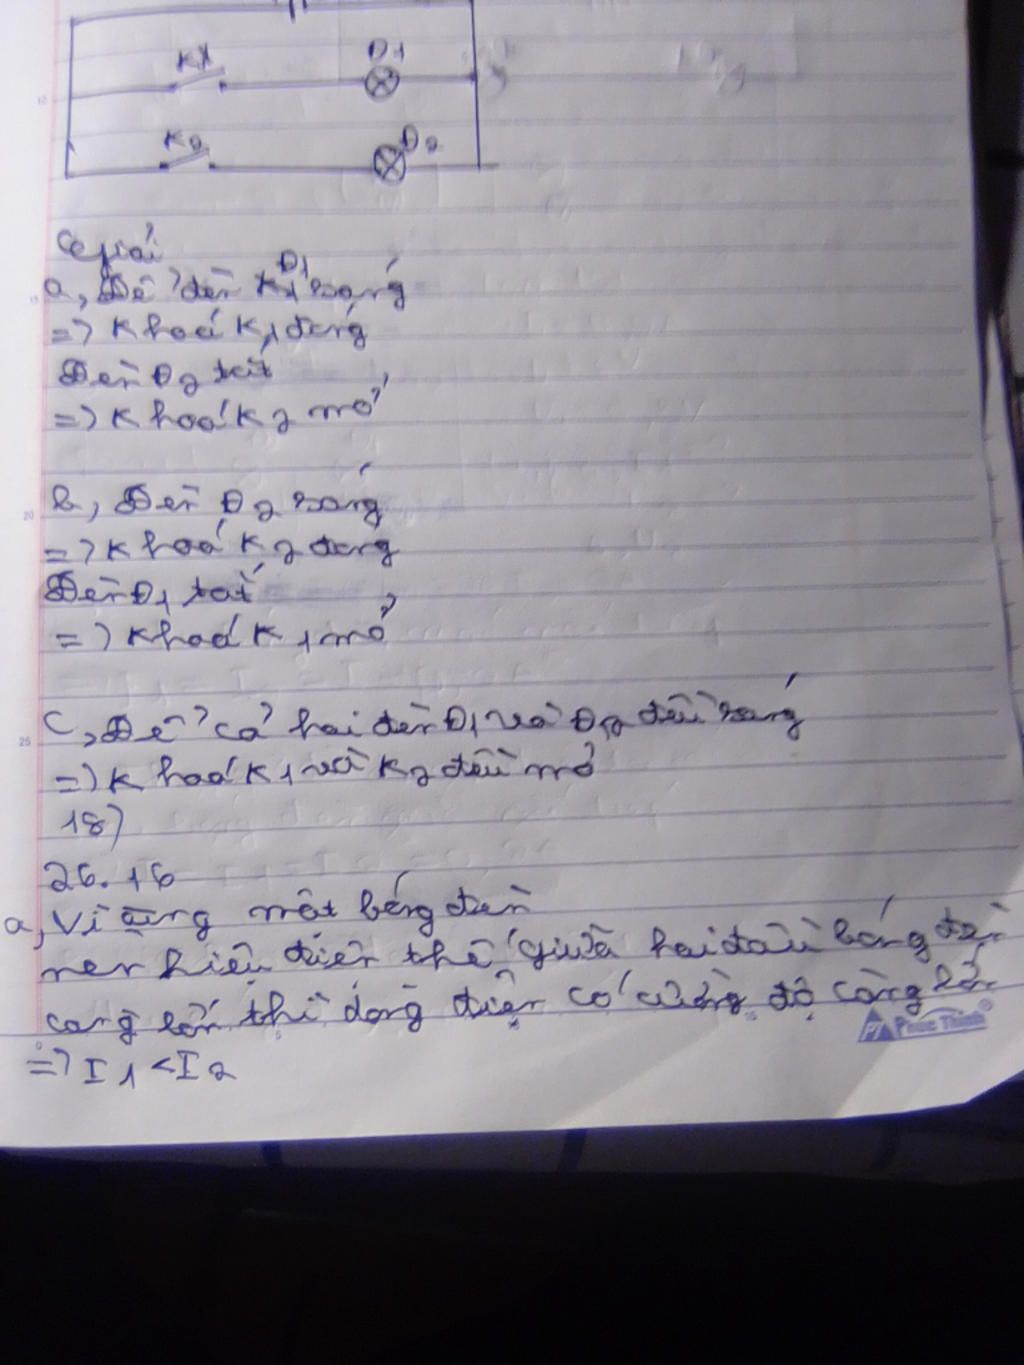 K1
Đ1
K2
Đ2
Giải
a, Để đèn Đ1 sáng
=> Khoá K1 đóng
Đèn Đ2 tắt
=> Khoá K2 mở
b, Đèn Đ2 sáng
=> Khoá K2 đóng
Đèn Đ1 tắt
=> Khoá K1 mở
c, Để cả hai đèn Đ1 và Đ2 đều sáng
=> Khoá K1 và K2 đều mở
18)
26.16
a, Vì cùng một bóng đèn
nên hiệu điện thế giữa hai đầu bóng đèn
càng lớn thì dòng điện có cường độ càng lớn
=> I1 < I2
Phúc Thịnh
10
15
20
25